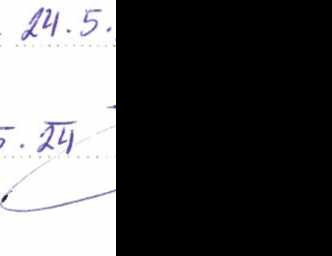 . 24.5.
5.24